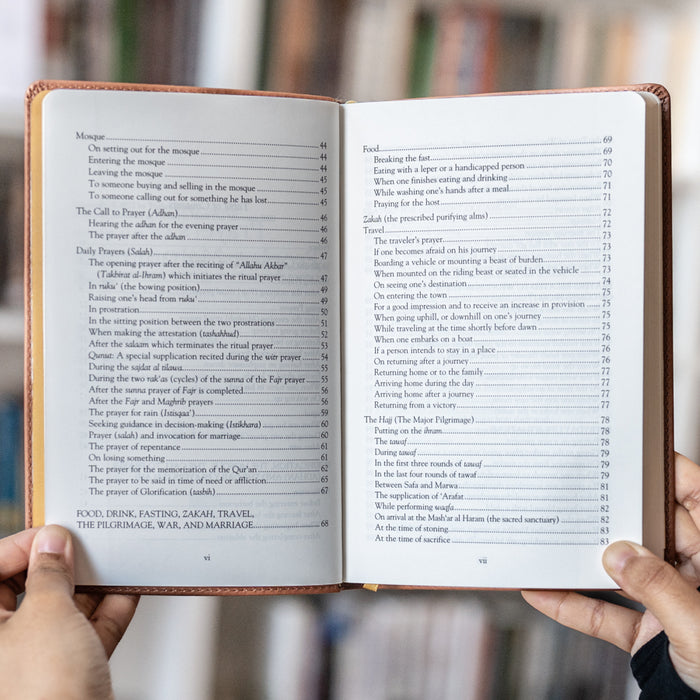 Mosque 44
On setting out for the mosque 44
Entering the mosque 44
Leaving the mosque 45
To someone buying and selling in the mosque 45
To someone calling out for something he has lost 45
The Call to Prayer (Adhan) 46
Hearing the adhan for the evening prayer 46
The prayer after the adhan 46
Daily Prayers (Salah) 47
The opening prayer after the reciting of "Allahu Akbar"
(Takbirat al-Ihram) which initiates the ritual prayer 47
In ruku' (the bowing position) 49
Raising one's head from ruku' 49
In prostration 50
In the sitting position between the two prostrations 51
When making the attestation (tashahhud) 52
After the salaam which terminates the ritual prayer 53
Qunut: A special supplication recited during the witr prayer 54
During the sajdat al tilawa 55
During the two rak'as (cycles) of the sunna of the Fajr prayer 55
After the sunna prayer of Fajr is completed 56
After the Fajr and Maghrib prayers 56
The prayer for rain (Istisqaa') 59
Seeking guidance in decision-making (Istikhara) 60
Prayer (salah) and invocation for marriage 60
The prayer of repentance 61
On losing something 61
The prayer for the memorization of the Qur'an 62
The prayer to be said in time of need or affliction 65
The prayer of Glorification (tasbih) 67
FOOD, DRINK, FASTING, ZAKAH, TRAVEL,
THE PILGRIMAGE, WAR, AND MARRIAGE 68
vi
Food 69
Breaking the fast 69
Eating with a leper or a handicapped person 70
When one finishes eating and drinking 70
While washing one's hands after a meal 71
Praying for the host 71
Zakah (the prescribed purifying alms) 72
Travel 72
The traveler's prayer 73
If one becomes afraid on his journey 73
Boarding a vehicle or mounting a beast of burden 73
When mounted on the riding beast or seated in the vehicle 73
On seeing one's destination 74
On entering the town 75
For a good impression and to receive an increase in provision 75
When going uphill, or downhill on one's journey 75
While traveling at the time shortly before dawn 75
When one embarks on a boat 76
If a person intends to stay in a place 76
On returning after a journey 76
Returning home or to the family 77
Arriving home during the day 77
Arriving home after a journey 77
Returning from a victory 77
The Hajj (The Major Pilgrimage) 78
Putting on the ihram 78
The tawaf 78
During tawaf 79
In the first three rounds of tawaf 79
In the last four rounds of tawaf 79
Between Safa and Marwa 81
The supplication of 'Arafat 81
While performing wuqfa 82
On arrival at the Mash'ar al Haram (the sacred sanctuary) 82
At the time of stoning 83
At the time of sacrifice 83
vii